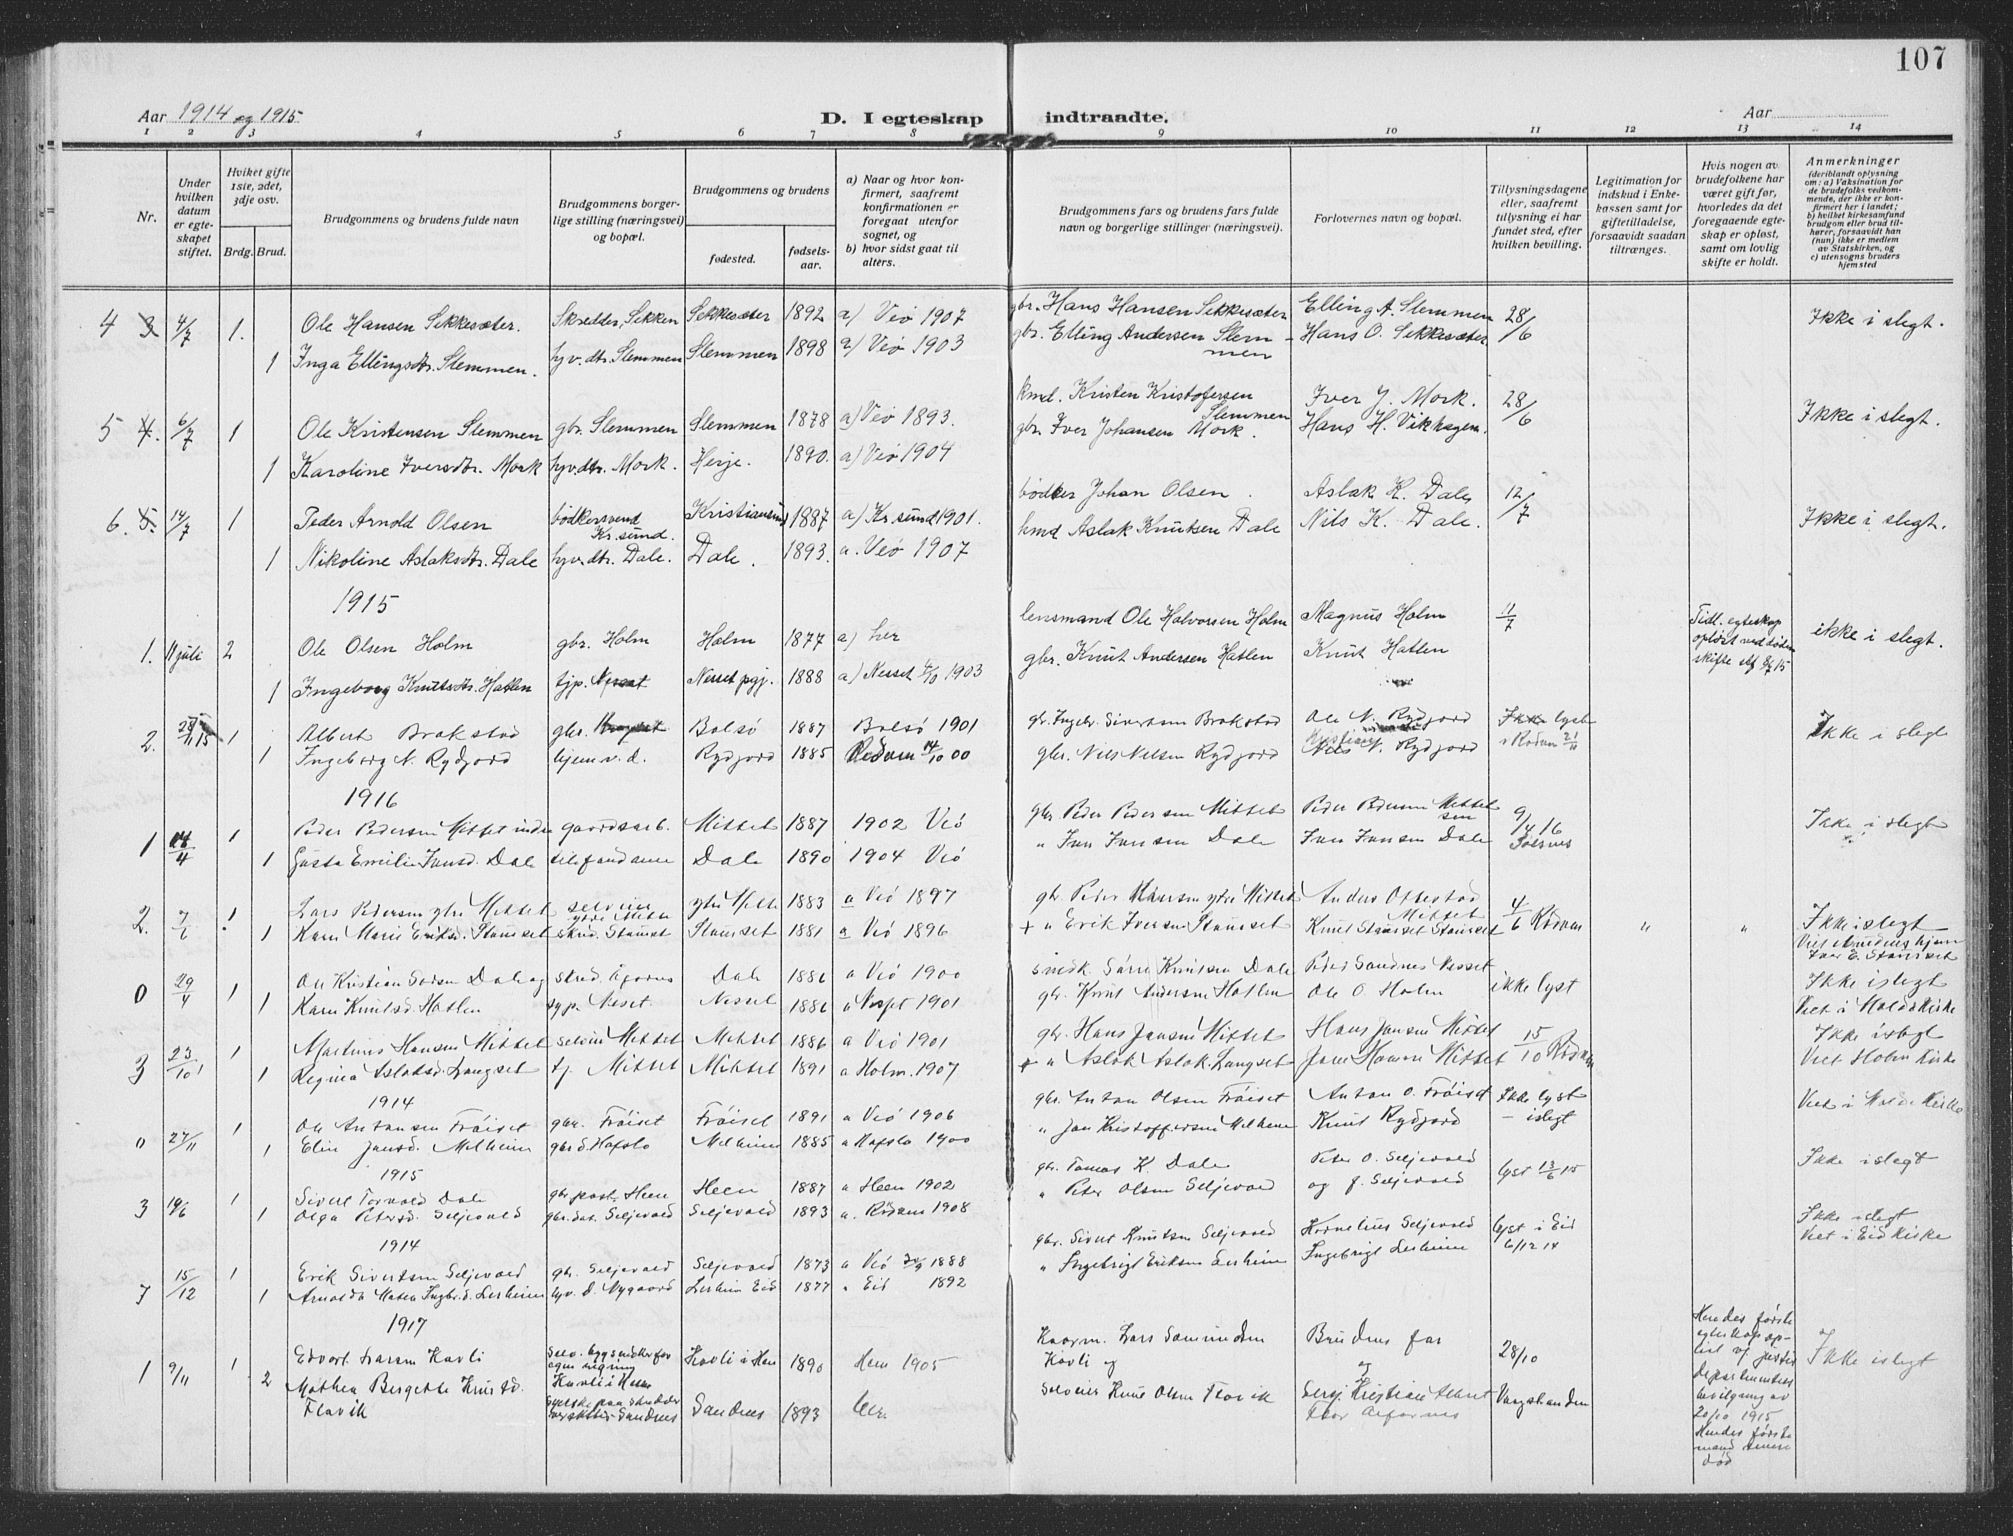 107
Aar 1914 og 1915
D. I egteskap indtraadte.
Aar
1 2 3 4 5 6 7 8 9 10 11 12 13 14
Nr.
Under hvilken datum er egteskapet stiftet.
Hviket gifte 1ste, 2det, 3dje osv.
Brdg. Brud.
Brudgommens og brudens fulde navn
Brudgommens borgerlige stilling (næringsvei) og bopæl.
Brudgommens og brudens
fødested.
fødselsaar.
a) Naar og hvor konfirmert, saafremt konfirmationen er foregaat utenfor sognet, og
b) hvor sidst gaat til alters.
Brudgommens fars og brudens fars fulde navn og borgerlige stillinger (næringsvei).
Forlovernes navn og bopæl.
Tillysningsdagene eller, saafremt tillysning ei har fundet sted, efter hvilken bevilling.
Legitimation for indskud i Enkekassen samt for giftetilladelse, forsaavidt saadan tiltrænges.
Hvis nogen av brudefolkene har været gift før, hvorledes da det foregaaende egteskap er opløst, samt om lovlig skifte er holdt.
Anmerkninger
(deriblandt oplysning om: a) Vaksination for de brudefolks vedkommende, der ikke er konfirmert her i landet; b) hvilket kirkesamfund brudgom eller brud tilhører, forsaavidt han (hun) ikke er medlem av Statskirken, og c) utensogns bruders hjemsted
4 3 4/7 1. Ole Hansen Sekkesæter. Skredder, Sekken Sekkesæter 1892 a) Veø 1907 gbr. Hans Hansen Sekkesæter Elling A. Slemmen 28/6 Ikke i slegt.
1 Inga Ellingsdtr. Slemmen. hjv. dtr. Slemmen Slemmen 1898 a) Veø 1903 gbr. Elling Andersen Slemmen Hans O. Sekkesæter
5 4. 6/7 1 Ole Kristensen Slemmen gbr. Slemmen Slemmen 1878 a) Veø 1893. kmd. Kristen Kristofersen Slemmen Iver J. Mork. 28/6 Ikke i slegt.
1 Karoline Iversdtr. Mork hjv. dtr. Mork. Herje. 1890. a) Veø 1904 gbr. Iver Johansen Mork. Hans H. Vikhagen.
6. 5. 14/7 1 Peder Arnold Olsen bødkersvend Kr.sund. Kristiansund 1887 a) Kr.sund 1901. bødker Johan Olsen. Aslak K. Dale 12/7 Ikke i slegt.
1 Nikoline Aslaksdtr. Dale hjv. dtr. Dale. Dale. 1893. a. Veø 1907 kmd Aslak Knutsen Dale Nils K. Dale.
1915
1. 11 juli 2 Ole Olsen Holm gbr. Holm Holm 1877 a) her lensmand Ole Halvorsen Holm Magnus Holm 11/7 Tidl. egteskap opløst ved døden skifte ikke i slegt.
1 Ingeborg Knutsdtr. Hatlen tjp. Nesset Nesset pgj. 1888 a) Nesset 1903 gbr. Knut Andersen Hatlen Knut Hatlen
2. 1 Albert Brakstad gbr. Bolsø 1887 Bolsø 1901 gbr. Ingebr. Sivertsen Brakstad Ole N. Rydjord Ikke lyst Ikke i slegt
1 Ingeborg N. Rydjord hjem v. d. Rydjord 1885 Rødven 14/10 00 gbr. Nils Nilsen Rydjord Nils N. Rydjord i Rødven 21/11
1916
1 4 1 Peder Pedersen Mittet indre gaardsarb. Mittet 1887 1902 Veø gbr Peder Pedersen Mittet Peder Pedersen Mittet sen 9/4 16 Ikke i slegt
1 Gusta Emilie Ivarsd. Dale telefondame Dale 1890 1904 Veø " Ivar Iversen Dale Ivar Iversen Dale
2. 1 Lars Pedersen ytre Mittet ytre Mittet 1883 a Veø 1897 gbr Peder ytre Mittet Anders Mittet 4/6 Rødven " " Ikke i slegt
1 Karen Marie Eriksd. Stamset Stamset Stamset 1881 a Veø 1896 + " Erik Iversen Stamset Knut Stamset Stamset
0 29/4 1 Ole Kristian Dale Dale 1886 a Veø 1900 Knutsen Dale Peder Sandnes Nesset ikke lyst Ikke i slegt
1 Karen Knutsd. Hatlen Nesset. Nesset 1886 a 1901 gbr. Knut Andersen Hatlen Ole O Holm Viet i Molde Kirke
3 23/10 1 Martinus Hansen Mittet Mittet Mittet 1886 a Veø 1901 gbr. Hans Jansen Mittet Hans Jansen Mittet 15/10 Rødven Ikke i slegt
1 Regina Aslaksd. Langset tj. Mittet Mittet 1891 a Holm. 1907 + " Aslak Aslak. Langset Jens Hansen Mittet Viet Holm Kirke
1914
" 27/11 1 Ole Antonsen Frøiset gbr. Frøiset Frøiset 1891 a Veø 1906 gbr. Anton Olsen Frøiset Anton O. Frøiset Ikke lyst Viet i Molde Kirke
1 Elen Jansd. Melheim gbr d. Hafslo Melheim 1885 a Hafslo 1900 " Jan Kristoffersen Melheim Knut Rydjord - islegt
1915
3 19/6 1 Sivert Torvald Dale Heen Heen 1887 a Heen 1902 gbr. Tomas K. Dale Peter O. Seljevold lyst 13/6 15 Ikke i slegt
1 Olga Petersd. Seljevold gbr. dat. Seljevold Seljevold 1893 a. Rødven 1908 " Peter Olsen Seljevold og J. Seljevold
1914
7 15/12 1 Erik Sivertsen Seljevold gbr. Seljevold Seljevold 1873 a Veø 1888 gbr. Sivert Knutsen Seljevold Kornelius Seljevold lyst i Eid 6/12 14 Ikke i slegt Viet i Eid Kirke
1 Arnolda Matea Ingbr. d. Lerheim hjv. d. Nygaard Lerheim Eid 1877 " Eid 1892 " Ingebrigt Eriksen Lerheim Ingebrigt Lerheim
1917
1 9/11 1 Edvart Larsen Kavli Selv. Kavli i Heen Kavli i Heen 1890 Heen 1905 Kaarm. Lars Kavli og Brudens far og 28/10 Hendes første egteskap opløst v/ justisdepartementets bevilgning av 20/10 1915 Hendes første mand død Ikke i slegt
2 Mathea Bergette Knutsd. Flovik Sandnes Sandnes 1893 her Selveier Knut Olsen Flovik Kristian